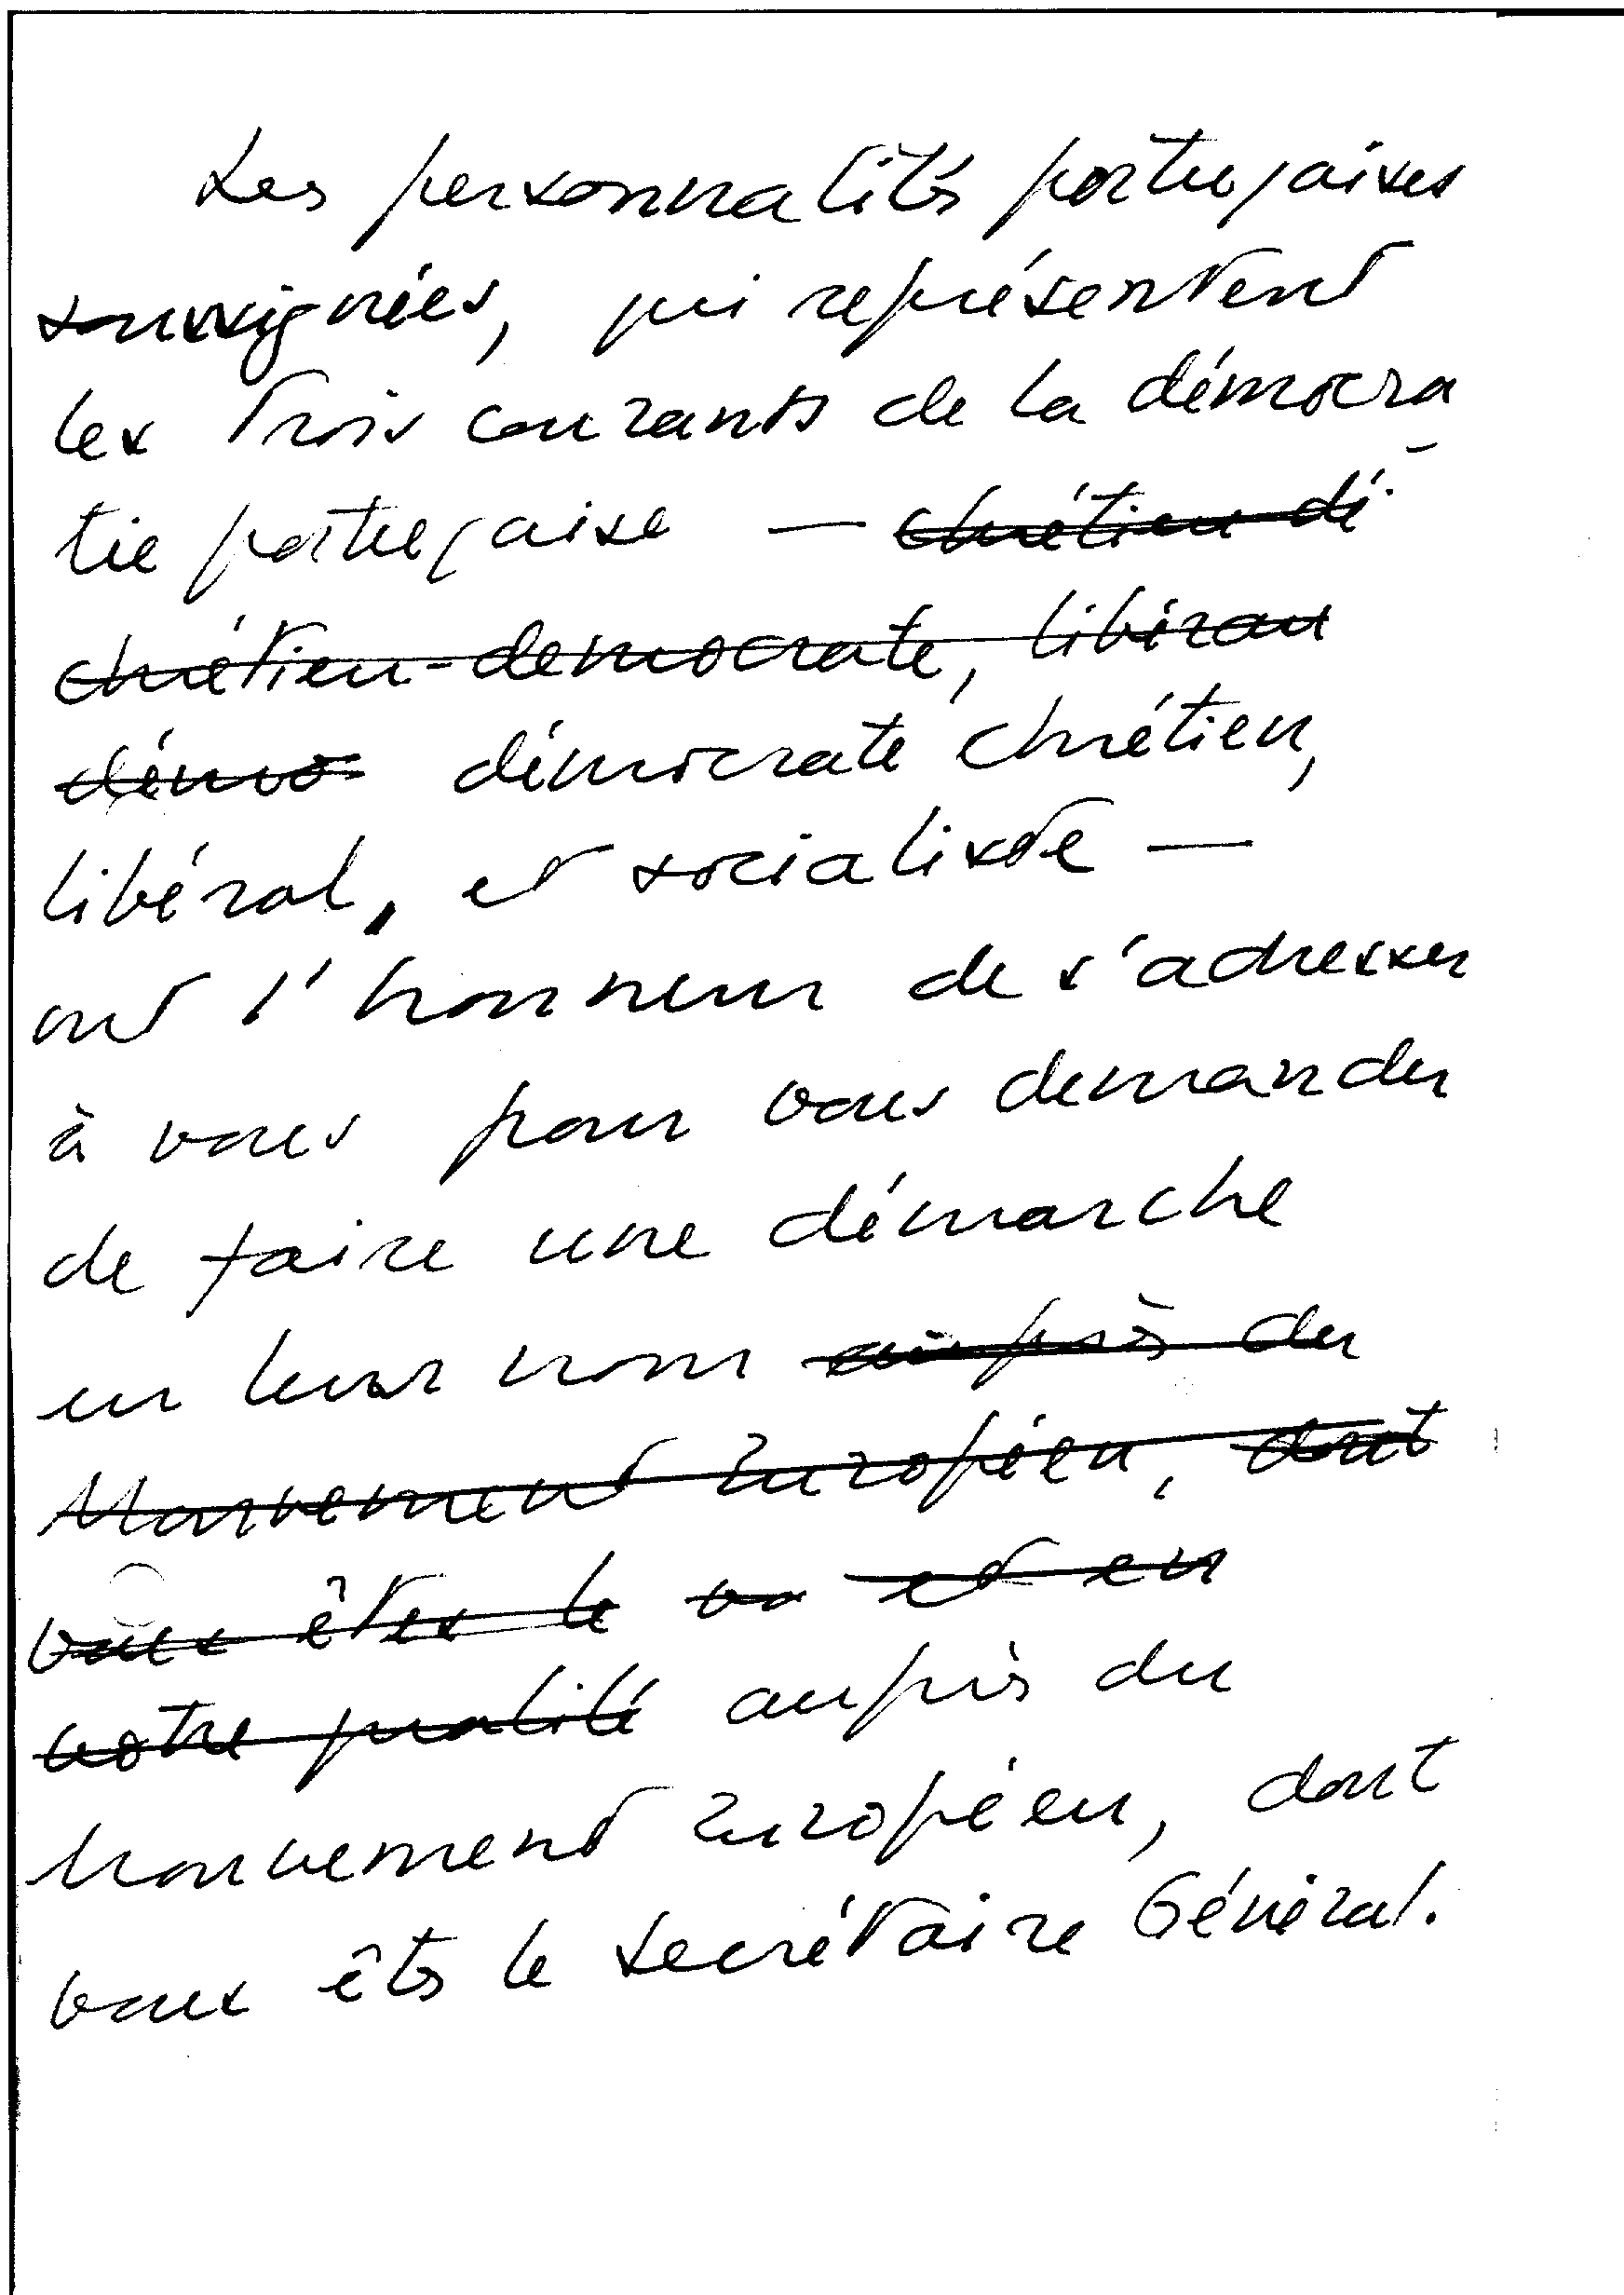 Les personnalités portugaises
soussignées, qui représentent
les trois courants de la démocra
tie portugaise — chrétien dé
chrétien-democrate, libérau
démo- démocrate chrétien,
libéral, et socialiste —
ont l'honneur de s'adresser
à vous pour vous demander
de faire une démarche
en leur nom auprès du
Mouvement Européen, dont
vous êtes le vo et en
votre qualité auprès du
Mouvement Européen, dont
vous êtes le Secrétaire Général.